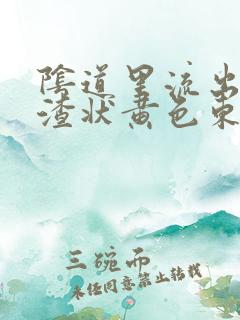 陰道里流出
渣状黄色東
三碗而
未经同意禁止转载